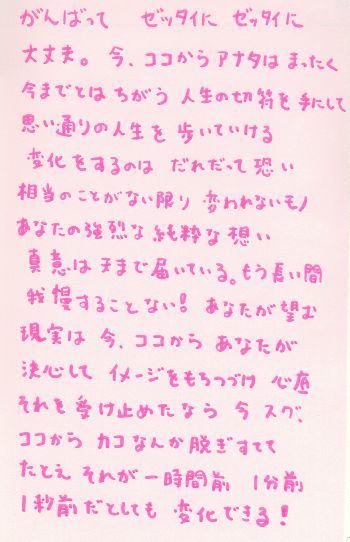 がんばって ゼッタイに ゼッタイに
大丈夫。今、ココからアナタは まったく
今までとは ちがう 人生の切符を手にして
思い通りの人生を 歩いていける
変化をするのは だれだって恐い
相当のことがない限り 変われないモノ
あなたの強烈な純粋な想い
真意は天まで届いている。もう長い間
我慢することない! あなたが望む
現実は 今、ココから あなたが
決心して イメージをもちつづけ 心底
それを 受け止めたなら 今 スグ、
ココから カコなんか脱ぎすてて
たとえ それが一時間前 1分前
1秒前だとしても 変化できる!